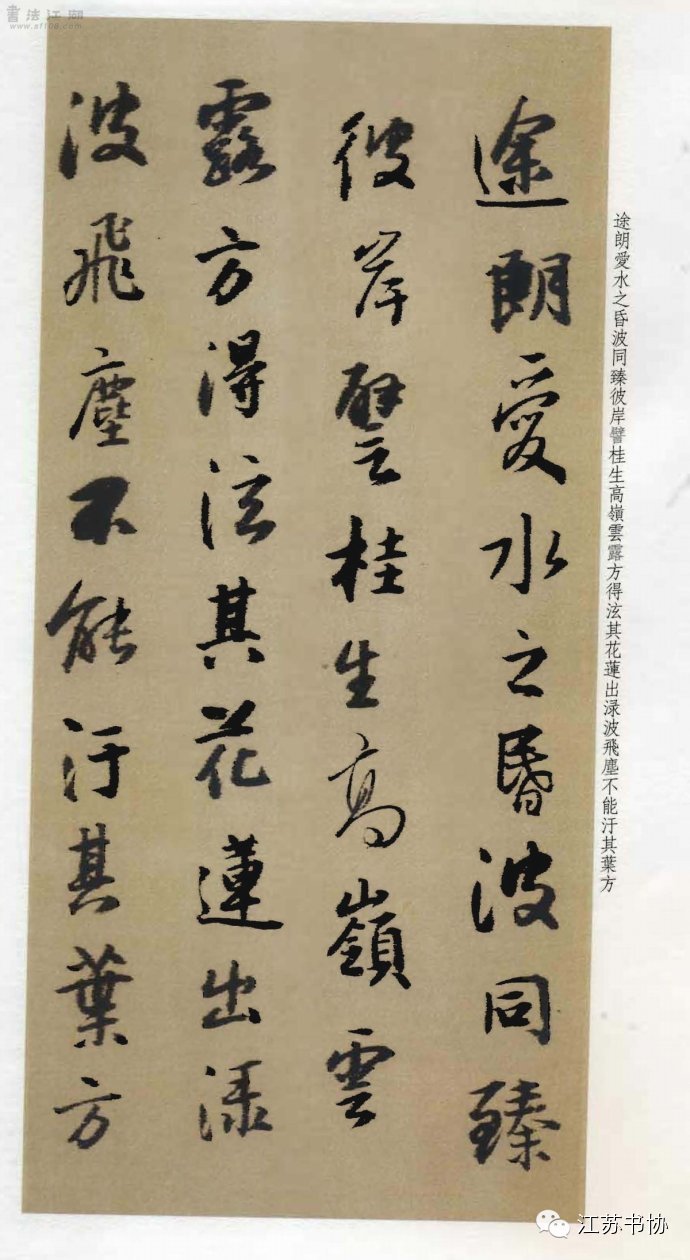 書法江湖
www.sf108.com
途朗愛水之昏波同臻
彼岸譬桂生高嶺雲
露方得泫其花蓮出渌
波飛塵不能汙其葉方
途朗愛水之昏波同臻彼岸譬桂生高嶺雲露方得泫其花蓮出渌波飛塵不能汙其葉方
江苏书协